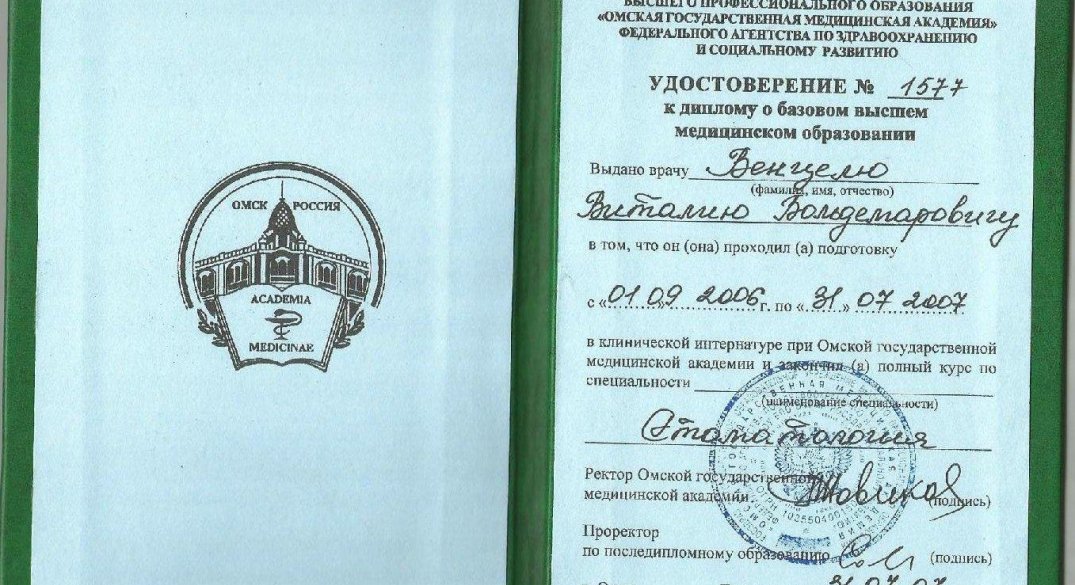 ОМСК РОССИЯ
ACADEMIA
MEDICINAE
ВЫСШЕГО ПРОФЕССИОНАЛЬНОГО ОБРАЗОВАНИЯ
«ОМСКАЯ ГОСУДАРСТВЕННАЯ МЕДИЦИНСКАЯ АКАДЕМИЯ»
ФЕДЕРАЛЬНОГО АГЕНТСТВА ПО ЗДРАВООХРАНЕНИЮ
И СОЦИАЛЬНОМУ РАЗВИТИЮ
УДОСТОВЕРЕНИЕ № 1577
к диплому о базовом высшем
медицинском образовании
Выдано врачу Венцелю
(фамилия, имя, отчество)
Виталию Вольдемаровичу
в том, что он (она) проходил (а) подготовку
с «01 09 2006 г. по «31» 07 2007
в клинической интернатуре при Омской государственной
медицинской академии и закончил (а) полный курс по
специальности
(наименование специальности)
Стоматология
Ректор Омской государственной
медицинской академии (подпись)
Проректор
по последипломному образованию (подпись)
31 07 07